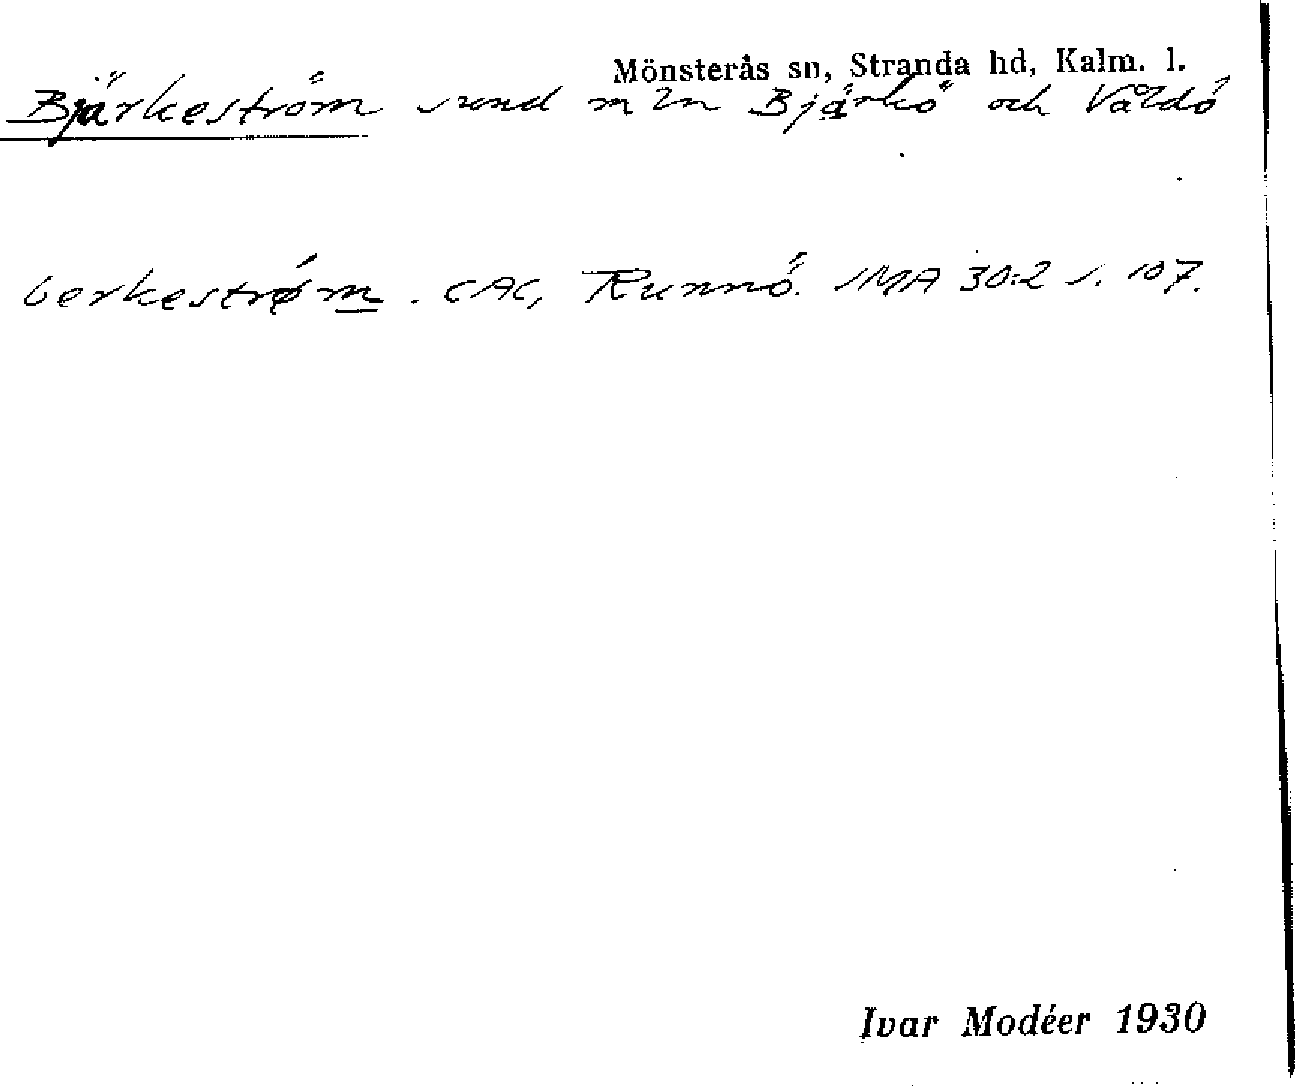 Mönsterås sn, Stranda hd, Kalm. l.
Bjärkeström sund mln Bjärkö och Våldö
berkestrøm. CAC, Runnö. IMA 30:2 s. 107.
Ivar Modéer 1930